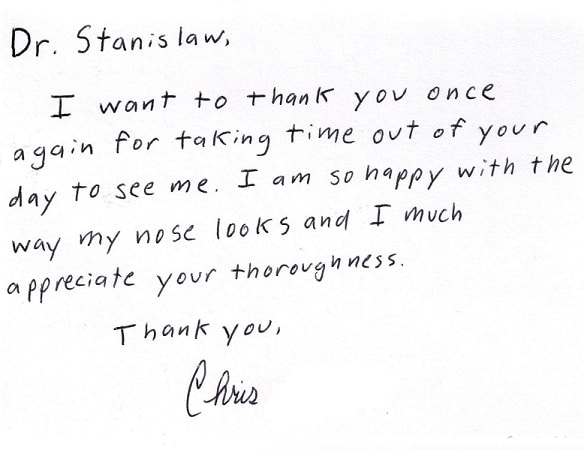 Dr. Stanislaw,
I want to thank you once
again for taking time out of your
day to see me. I am so happy with the
way my nose looks and I much
appreciate your thoroughness.
Thank you,
Chris